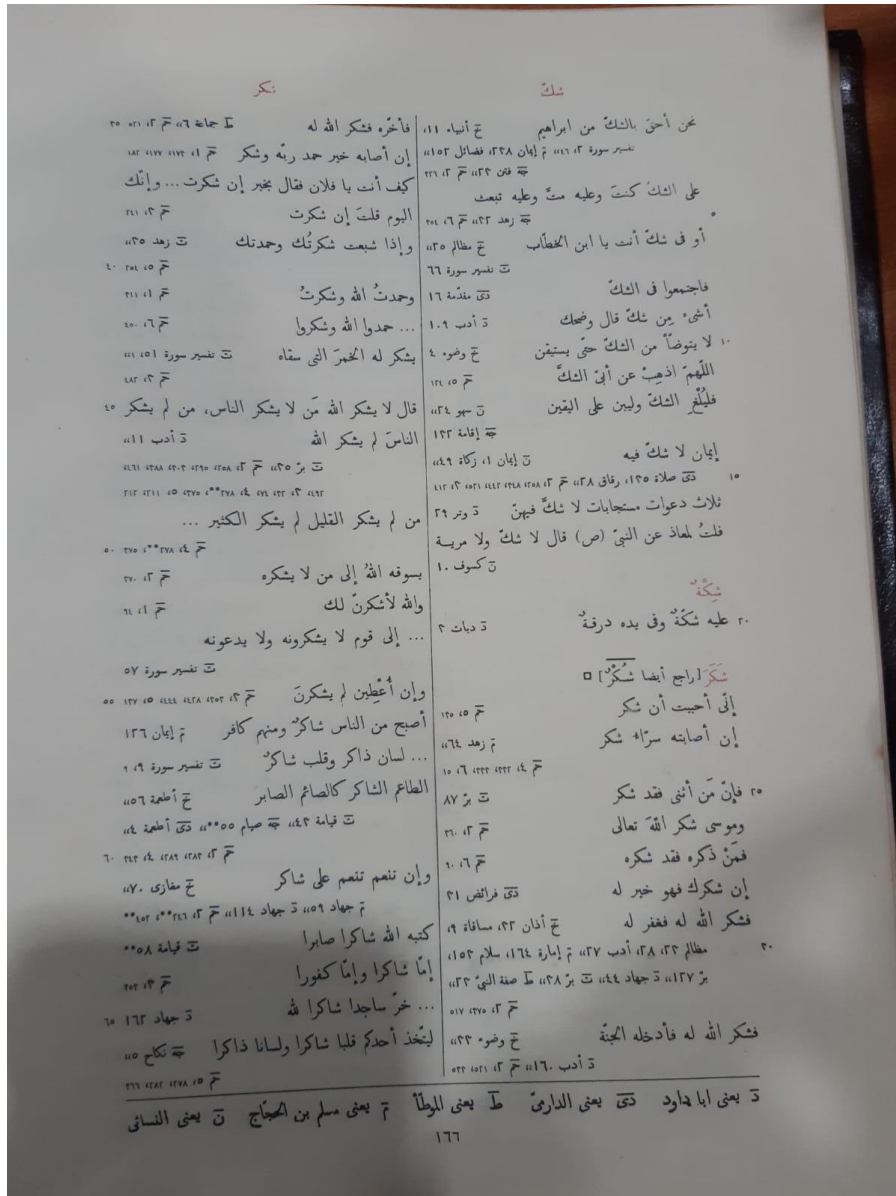 شكّ
شكر
نحن أحق بالشكّ من ابراهيم خ أنبياء ١١،
تفسير سورة ٢، ٤٦،، م إيمان ٢٣٨، فضائل ١٥٢،،
جه فتن ٢٣،، حم ٢، ٣٢٦
على الشكّ كنتَ وعليه متَّ وعليه تبعث
جه زهد ٣٢،، حم ٦،
أو فى شكّ أنت يا ابن الخطّاب خ مظالم ٢٥،،
ت تفسير سورة ٦٦
فاجتمعوا فى الشكّ دى مقدّمة ١٦
أشىء مِن شكّ قال وضحك د أدب ١٠٩
١٠ لا يتوضأ من الشكّ حتّى يستيقن خ وضوء ٤
اللّهمّ اذهِبْ عن أبىّ الشكَّ حم ٥، ١٢٤
فليُلْغِ الشكّ وليبن على اليقين ن سهو ٢٤،،
جه إقامة ١٣٢
إيمان لا شكّ فيه ن إيمان ١، زكاة ٤٩،،
١٥ دى صلاة ١٣٥، رقاق ٢٨،، حم ٢، ٢٥٨، ٣٤٨، ٤٤٢، ٥٢١، ٣، ٤١٢
ثلاث دعوات مستجابات لا شكَّ فيهنّ د وتر ٢٩
قلتُ لمعاذ عن النبىّ (ص) قال لا شكّ ولا مرية
ن كسوف ١٠
شِكّةٌ
٢٠ عليه شكّةٌ وفى يده درقةٌ د ديات ٣
شَكَرَ [راجع أيضا شُكْرٌ]
إنّى أحببت أن شكر حم ٥، ١٣٥
إن أصابته سرّاء شكر م زهد ٦٤،،
حم ٤، ٣٣٢، ٣٣٣، ٦، ١٥
٢٥ فإنّ مَن أثنى فقد شكر ت برّ ٨٧
وموسى شكر اللّهَ تعالى حم ٢، ٣٦٠
فمَنْ ذكره فقد شكره حم ٦، ٩٠
إن شكرك فهو خير له دى فرائض ٣١
فشكر الله له فغفر له خ أذان ٣٢، مساقاة ٩،
٣٠ مظالم ٢٣، ٢٨، أدب ٢٧،، م إمارة ١٦٤، سلام ١٥٣،
برّ ١٢٧،، د جهاد ٤٤،، ت برّ ٣٨،، ط صفة النبىّ ٢٣،،
حم ٢، ٣٧٥، ٥١٧
فشكر الله له فأدخله الجنّة خ وضوء ٣٣،،
د أدب ١٦٠،، حم ٢، ٥٢١، ٥٣٣
فأخّره فشكر الله له ط جماعة ٦،، حم ٢، ٥٢١ ٣٥
إن أصابه خير حمد ربّه وشكر حم ١، ١٧٣، ١٧٧، ١٨٢
كيف أنت يا فلان فقال بخير إن شكرت ... وإنّك
اليوم قلتَ إن شكرت حم ٣، ٢٤١
وإذا شبعت شكرتُك وحمدتك ت زهد ٣٥،،
حم ٥، ٢٥٤ ٤٠
وحمدتُ الله وشكرتُ حم ١، ٣١١
... حمدوا الله وشكروا حم ٦، ٤٥٠
يشكر له الخمرَ التى سقاه ت تفسير سورة ٥١، ١،،
حم ٣، ٤٨٢
قال لا يشكر الله مَن لا يشكر الناس، من لم يشكر ٤٥
الناسَ لم يشكر الله د أدب ١١،،
ت برّ ٣٥،، حم ٢، ٢٥٨، ٢٩٥، ٣٠٣، ٣٨٨، ٤٦١،
٤٩٢، ٣، ٣٢، ٧٤، ٤، ٢٧٨**، ٣٧٥، ٥، ٢١١، ٢١٢
من لم يشكر القليل لم يشكر الكثير ...
حم ٤، ٢٧٨**، ٣٧٥ ٥٠
يسوقه اللهُ إلى من لا يشكره حم ٢، ٣٧٠
والله لأشكرنّ لك حم ١، ٩٤
... إلى قوم لا يشكرونه ولا يدعونه
ت تفسير سورة ٥٧
وإن أُعْطِين لم يشكرنَ حم ٣، ٤٢٨، ٤٤٤، ٥، ١٣٧ ٥٥
أصبح من الناس شاكرٌ ومنهم كافر م إيمان ١٢٦
... لسان ذاكر وقلب شاكرٌ ت تفسير سورة ٩، ٩
الطاعم الشاكر كالصائم الصابر خ أطعمة ٥٦،،
ت قيامة ٤٣،، جه صيام ٥٥**،، دى أطعمة ٤،،
حم ٢، ٢٨٣، ٢٨٩، ٤، ٣٤٣ ٦٠
وإن تنعم تنعم على شاكر خ مغازى ٧٠،،
م جهاد ٥٩،، د جهاد ١١٤،، حم ٢، ٢٤٦**، ٤٥٢**
كتبه الله شاكرا صابرا ت قيامة ٥٨**
إمّا شاكرا وإمّا كفورا حم ٣، ٣٥٣
... خرّ ساجدا شاكرا لله د جهاد ١٦٢ ٦٥
ليتّخذ أحدكم قلبا شاكرا ولسانا ذاكرا جه نكاح ٥،،
حم ٥، ٢٧٨، ٢٨٢، ٣٦٦
د يعنى ابا داود دى يعنى الدارمىّ ط يعنى الموطّأ م يعنى مسلم بن الحجّاج ن يعنى النسائى
١٦٦